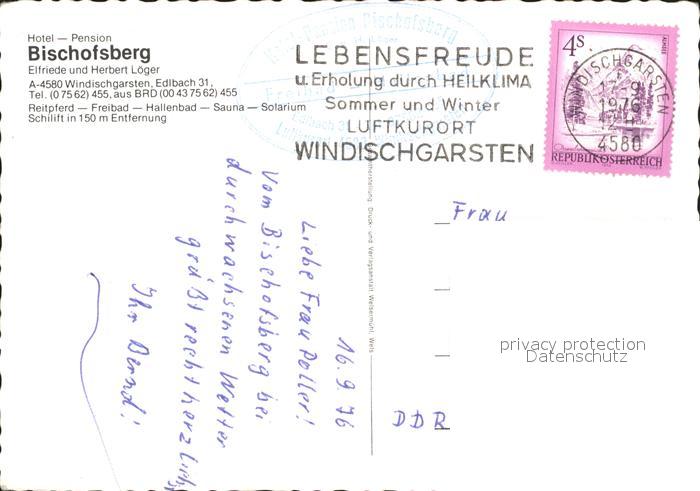 Hotel — Pension
Bischofsberg
Elfriede und Herbert Löger
A-4580 Windischgarsten, Edlbach 31,
Tel. (0 75 62) 455, aus BRD (00 43 75 62) 455
Reitpferd — Freibad — Hallenbad — Sauna — Solarium
Schilift in 150 m Entfernung
LEBENSFREUDE
u. Erholung durch HEILKLIMA
Sommer und Winter
LUFTKURORT
WINDISCHGARSTEN
4S
ALMSEE
REPUBLIK ÖSTERREICH
WINDISCHGARSTEN
1976
4580
16. 9. 76
Liebe Frau Poller!
Vom Bischofsberg bei
durchwachsenen Wetter
grüßt recht herzlich
Ihr Bernd!
Druck- und Verlagsanstalt Welsermühl, Wels
Frau
DDR
privacy protection
Datenschutz